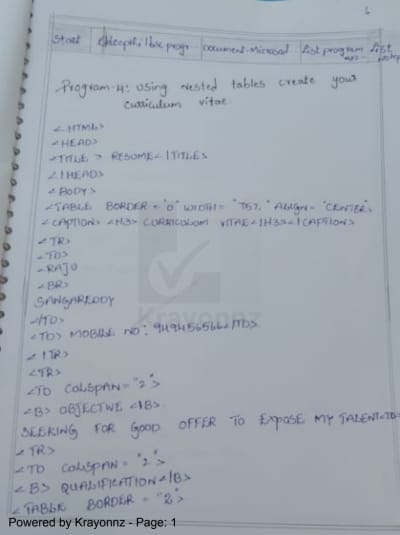 6
Start
Document-Microsoft
List program
List
Program-4: Using nested tables create your
curriculum vitae.
<HTML>
<HEAD>
<TITLE> RESUME</TITLE>
</HEAD>
<BODY>
<TABLE BORDER="0" WIDTH="75%" Align="CENTER">
<CAPTION> <H3> CURRICULUM VITAE</H3></CAPTION>
<TR>
<TD>
<RAJU
<BR>
SANGAREDDY
</TD>
<TD> MOBILE NO: 949456566</TD>
</TR>
<TR>
<TD COLSPAN="2">
<B> OBJECTIVE </B>
SEEKING FOR GOOD OFFER TO EXPOSE MY TALENT<TD>
<TR>
<TD COLSPAN="2">
<B> QUALIFICATION</B>
<TABLE BORDER="2">
Krayonnz
Powered by Krayonnz - Page: 1